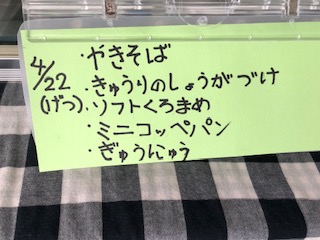 4/22
(げつ)
・やきそば
・きゅうりのしょうがづけ
・ソフトくろまめ
・ミニコッペパン
・ぎゅうにゅう